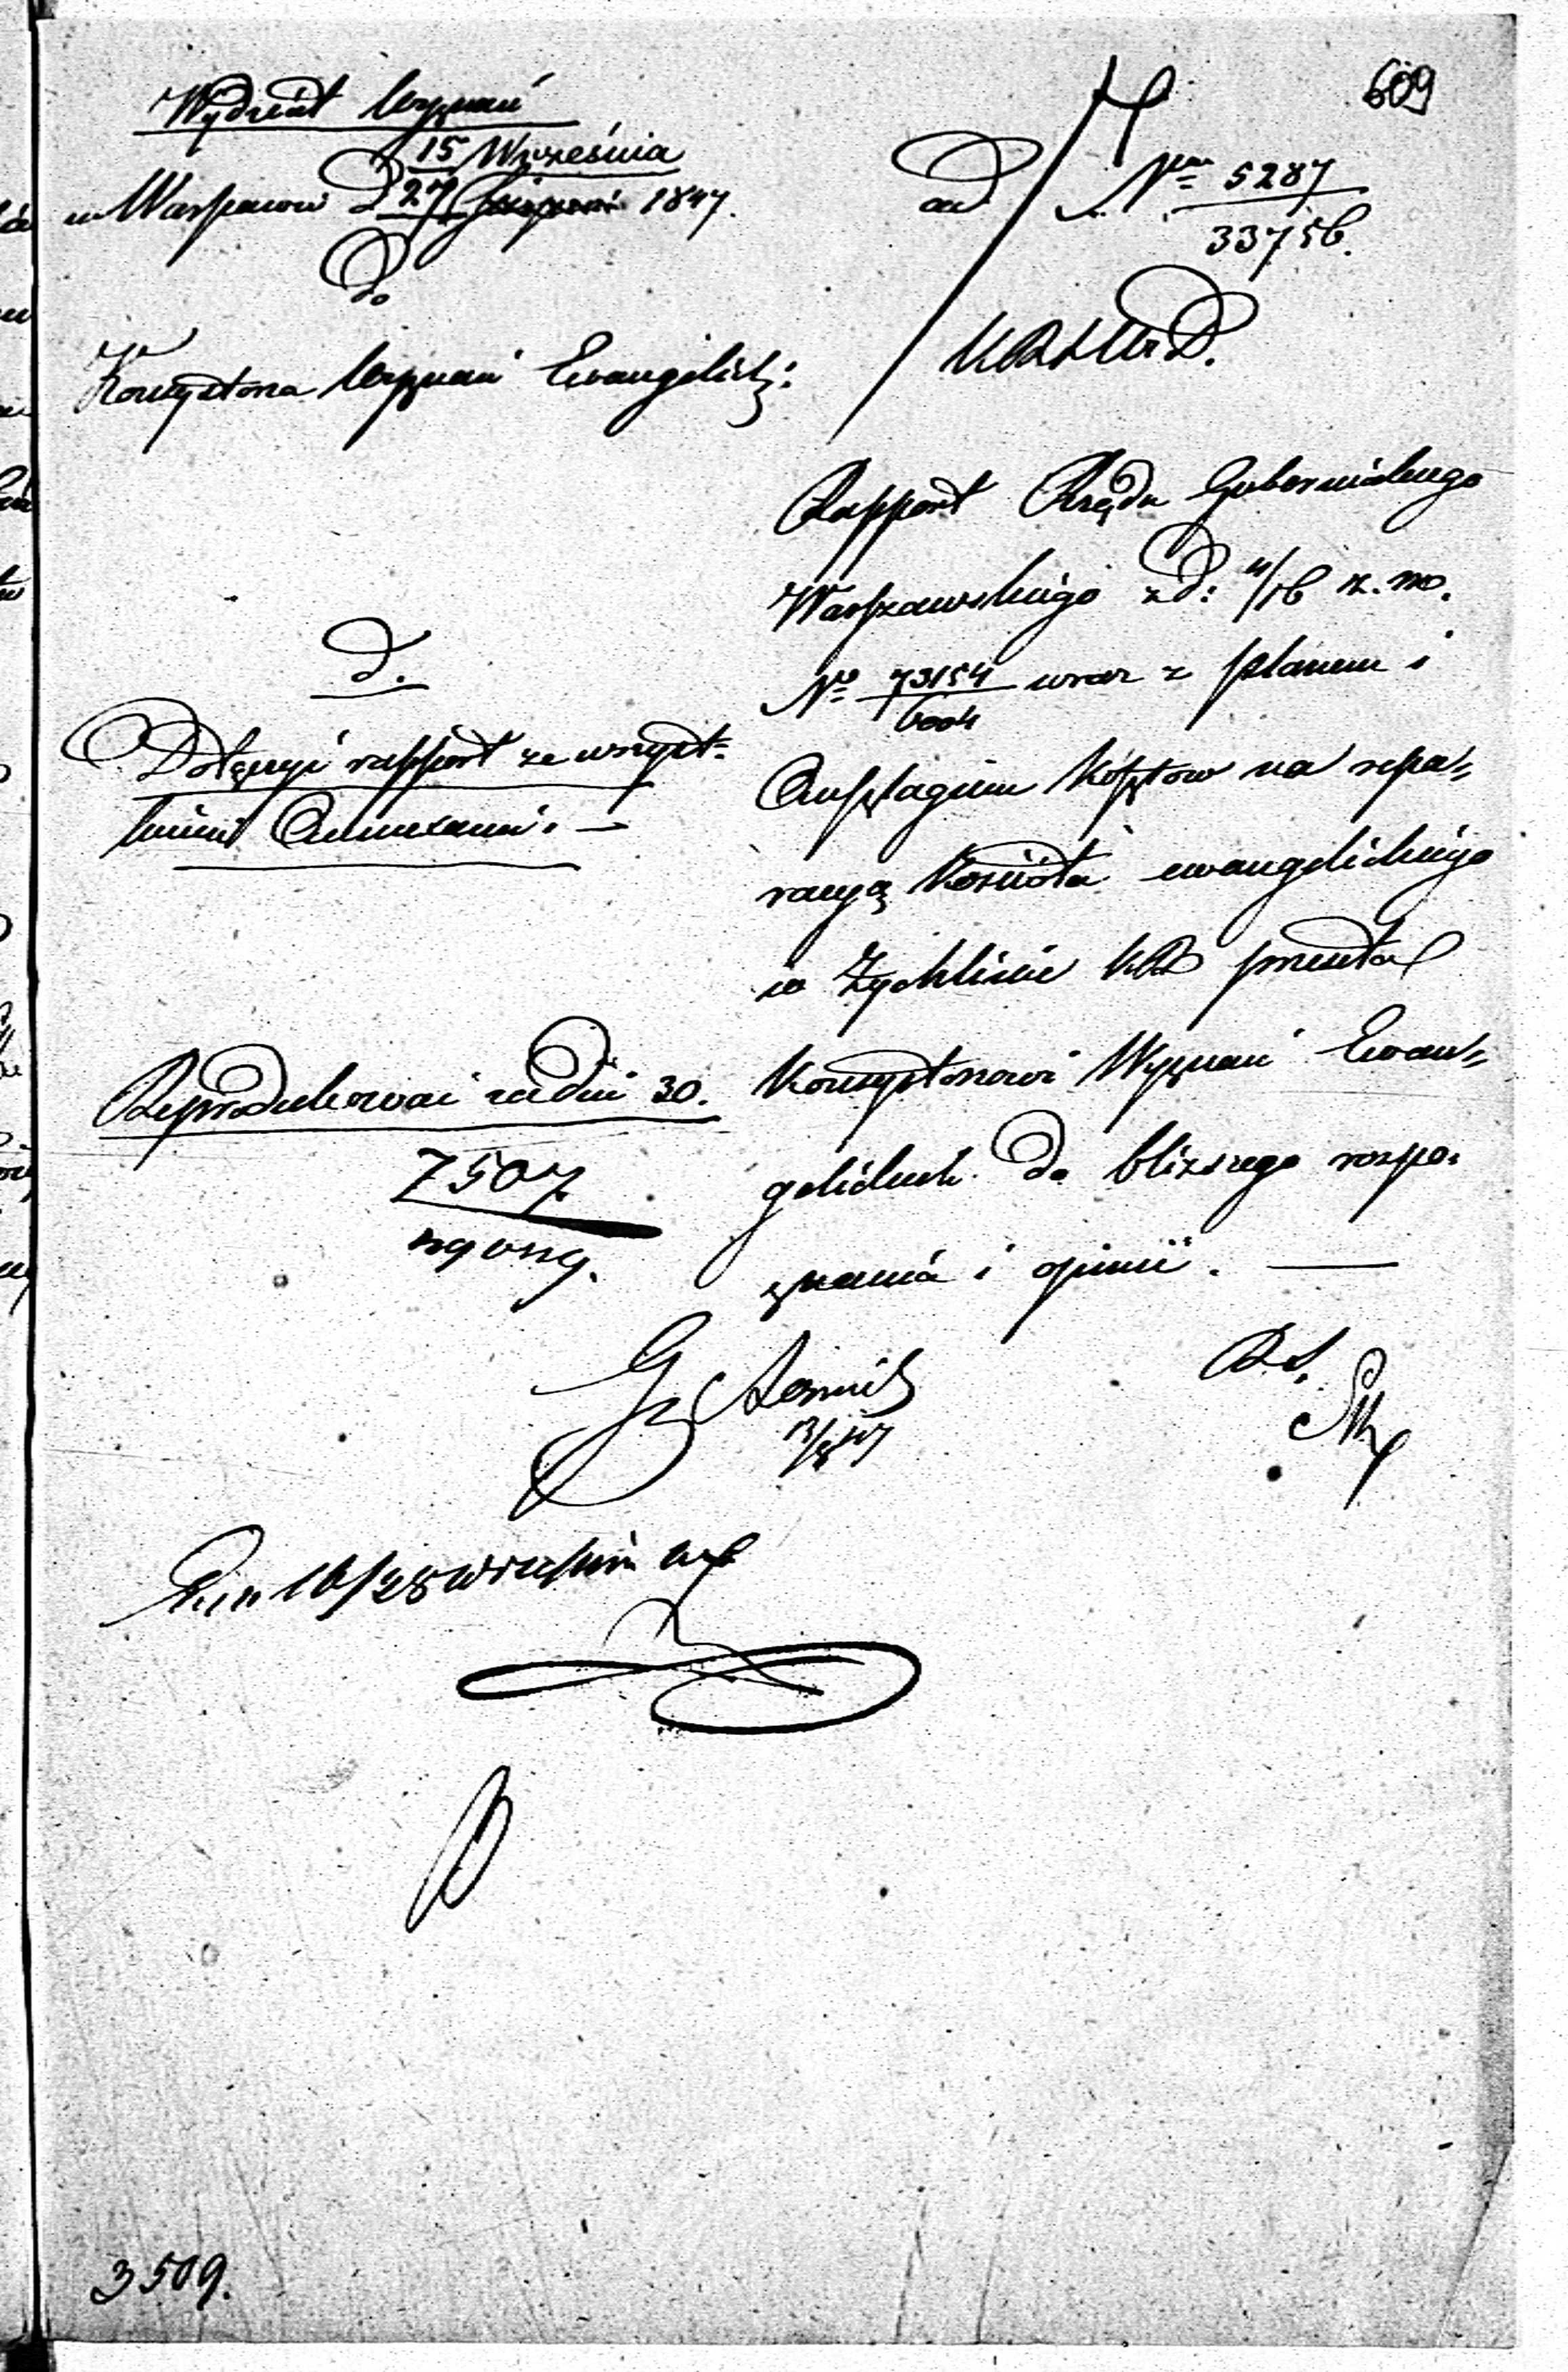 609
Wydział Wyznań
w Warszawie D 15/27 Września 1847.
do
Konsystorza Wyznań Ewangelick:
ad Nrm 5287/33756.
KRSWiD.
Rapport Rządu Gubernialnego
Warszawskiego z d: 4/16 z. m.
No 73154/6004 wraz z planem i
Anszlagiem kosztow na repa=
racyą Kościoła ewangelickiego
w Żychlinie KR przesyła
Konsystorzowi Wyznań Ewan=
gelickich do bliższego rozpo=
znania i opinii. —
D.
Dołączyć rapport ze wszyst=
kiemi Annexami. —
Reprodukować za dni 30.
7507
D.
16/28
3509.